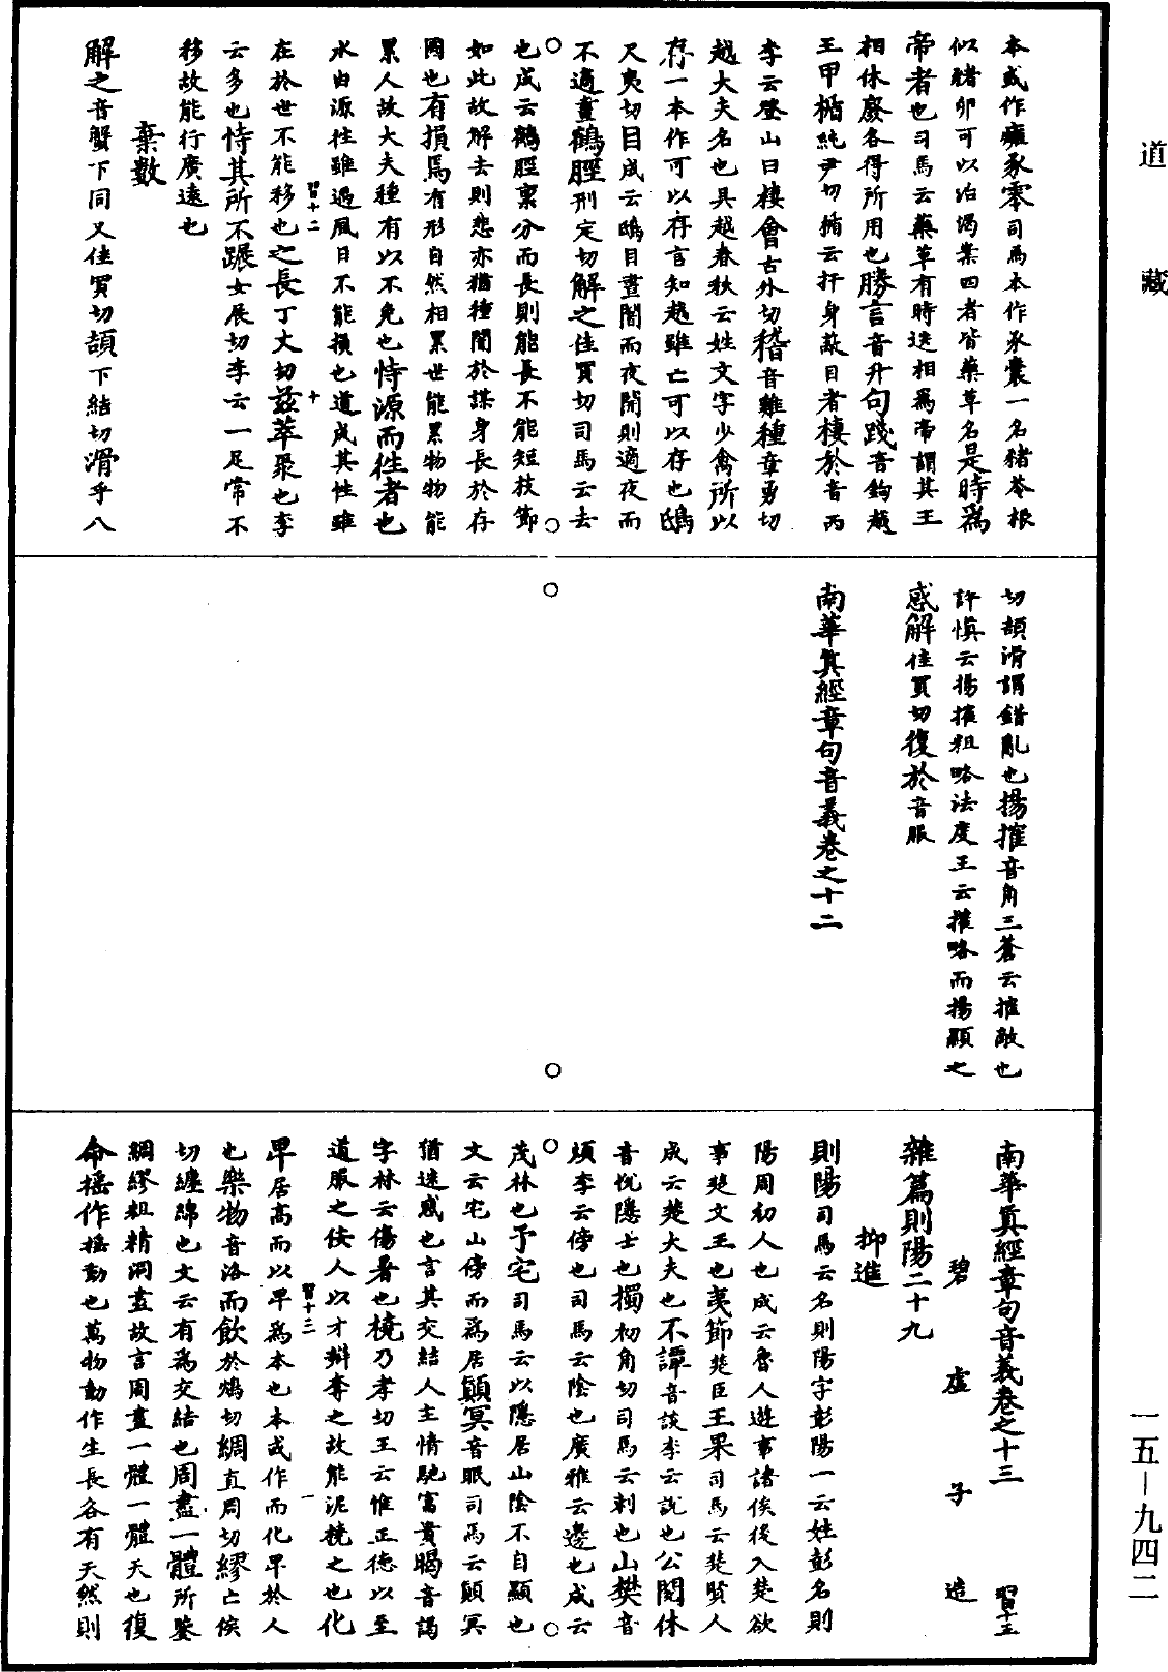 道藏
本或作癰豕零司馬本作豕囊一名豬苓根
似豬卵可以治渴案四者皆藥草名是時爲
帝者也司馬云藥草有時迭相爲帝謂其王
相休廢各得所用也勝言音升句踐音鉤越
王甲楯純尹切楯云扞身蔽目者棲於音西
李云登山曰棲會古外切稽音雞種章勇切
越大夫名也具越春秋云姓文字少禽所以
存一本作可以存言知越雖亡可以存也鴟
尺夷切目成云鴟目晝闇而夜開則適夜而
不適晝鶴脛刑定切解之佳買切司馬云去
也成云鶴脛稟分而長則能長不能短技節
如此故解去則悲亦猶種闇於謀身長於存
國也有損焉有形自然相累世能累物物能
累人故大夫種有以不免也恃源而往者也
水由源往雖遇風日不能損也道成其性雖
在於世不能移也之長丁丈切茲萃聚也李
習十二
十
云多也恃其所不蹍女展切李云一足常不
移故能行廣遠也
棄數
解之音蟹下同又佳買切頡下結切滑乎八
切頡滑謂錯亂也揚搉音角三蒼云搉敵也
許慎云揚搉粗略法度王云搉略而揚顯之
惑解佳買切復於音服
南華真經章句音義卷之十二
南華真經章句音義卷之十三
習十三
碧虛子造
雜篇則陽二十九
抑進
則陽司馬云名則陽字彭陽一云姓彭名則
陽周初人也成云魯人遊事諸侯後入楚欲
事楚文王也夷節楚臣王果司馬云楚賢人
成云楚大夫也不譚音談李云說也公閱休
音悅隱士也擉初角切司馬云刺也山樊音
煩李云傍也司馬云陰也廣雅云邊也成云
茂林也予宅司馬云以隱居山陰不自顯也
文云宅山傍而爲居顛冥音眠司馬云顛冥
猶迷惑也言其交結人主情馳富貴暍音謁
字林云傷暑也橈乃孝切王云惟正德以至
道服之佞人以才辯奪之故能泥橈之也化
卑居高而以卑爲本也本或作而化卑於人
習十三
一
也樂物音洛而飲於鴆切綢直周切繆亡侯
切纏綿也文云有爲交結也周盡一體所鑒
綢繆粗精洞盡故言周盡一體一體天也復
命搖作搖動也萬物動作生長各有天然則
一五—九四二